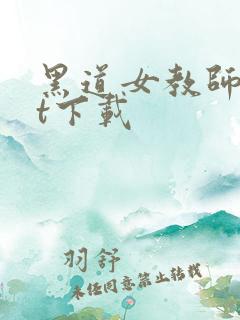 黑道女教師
t下載
羽舒
未经同意禁止转载